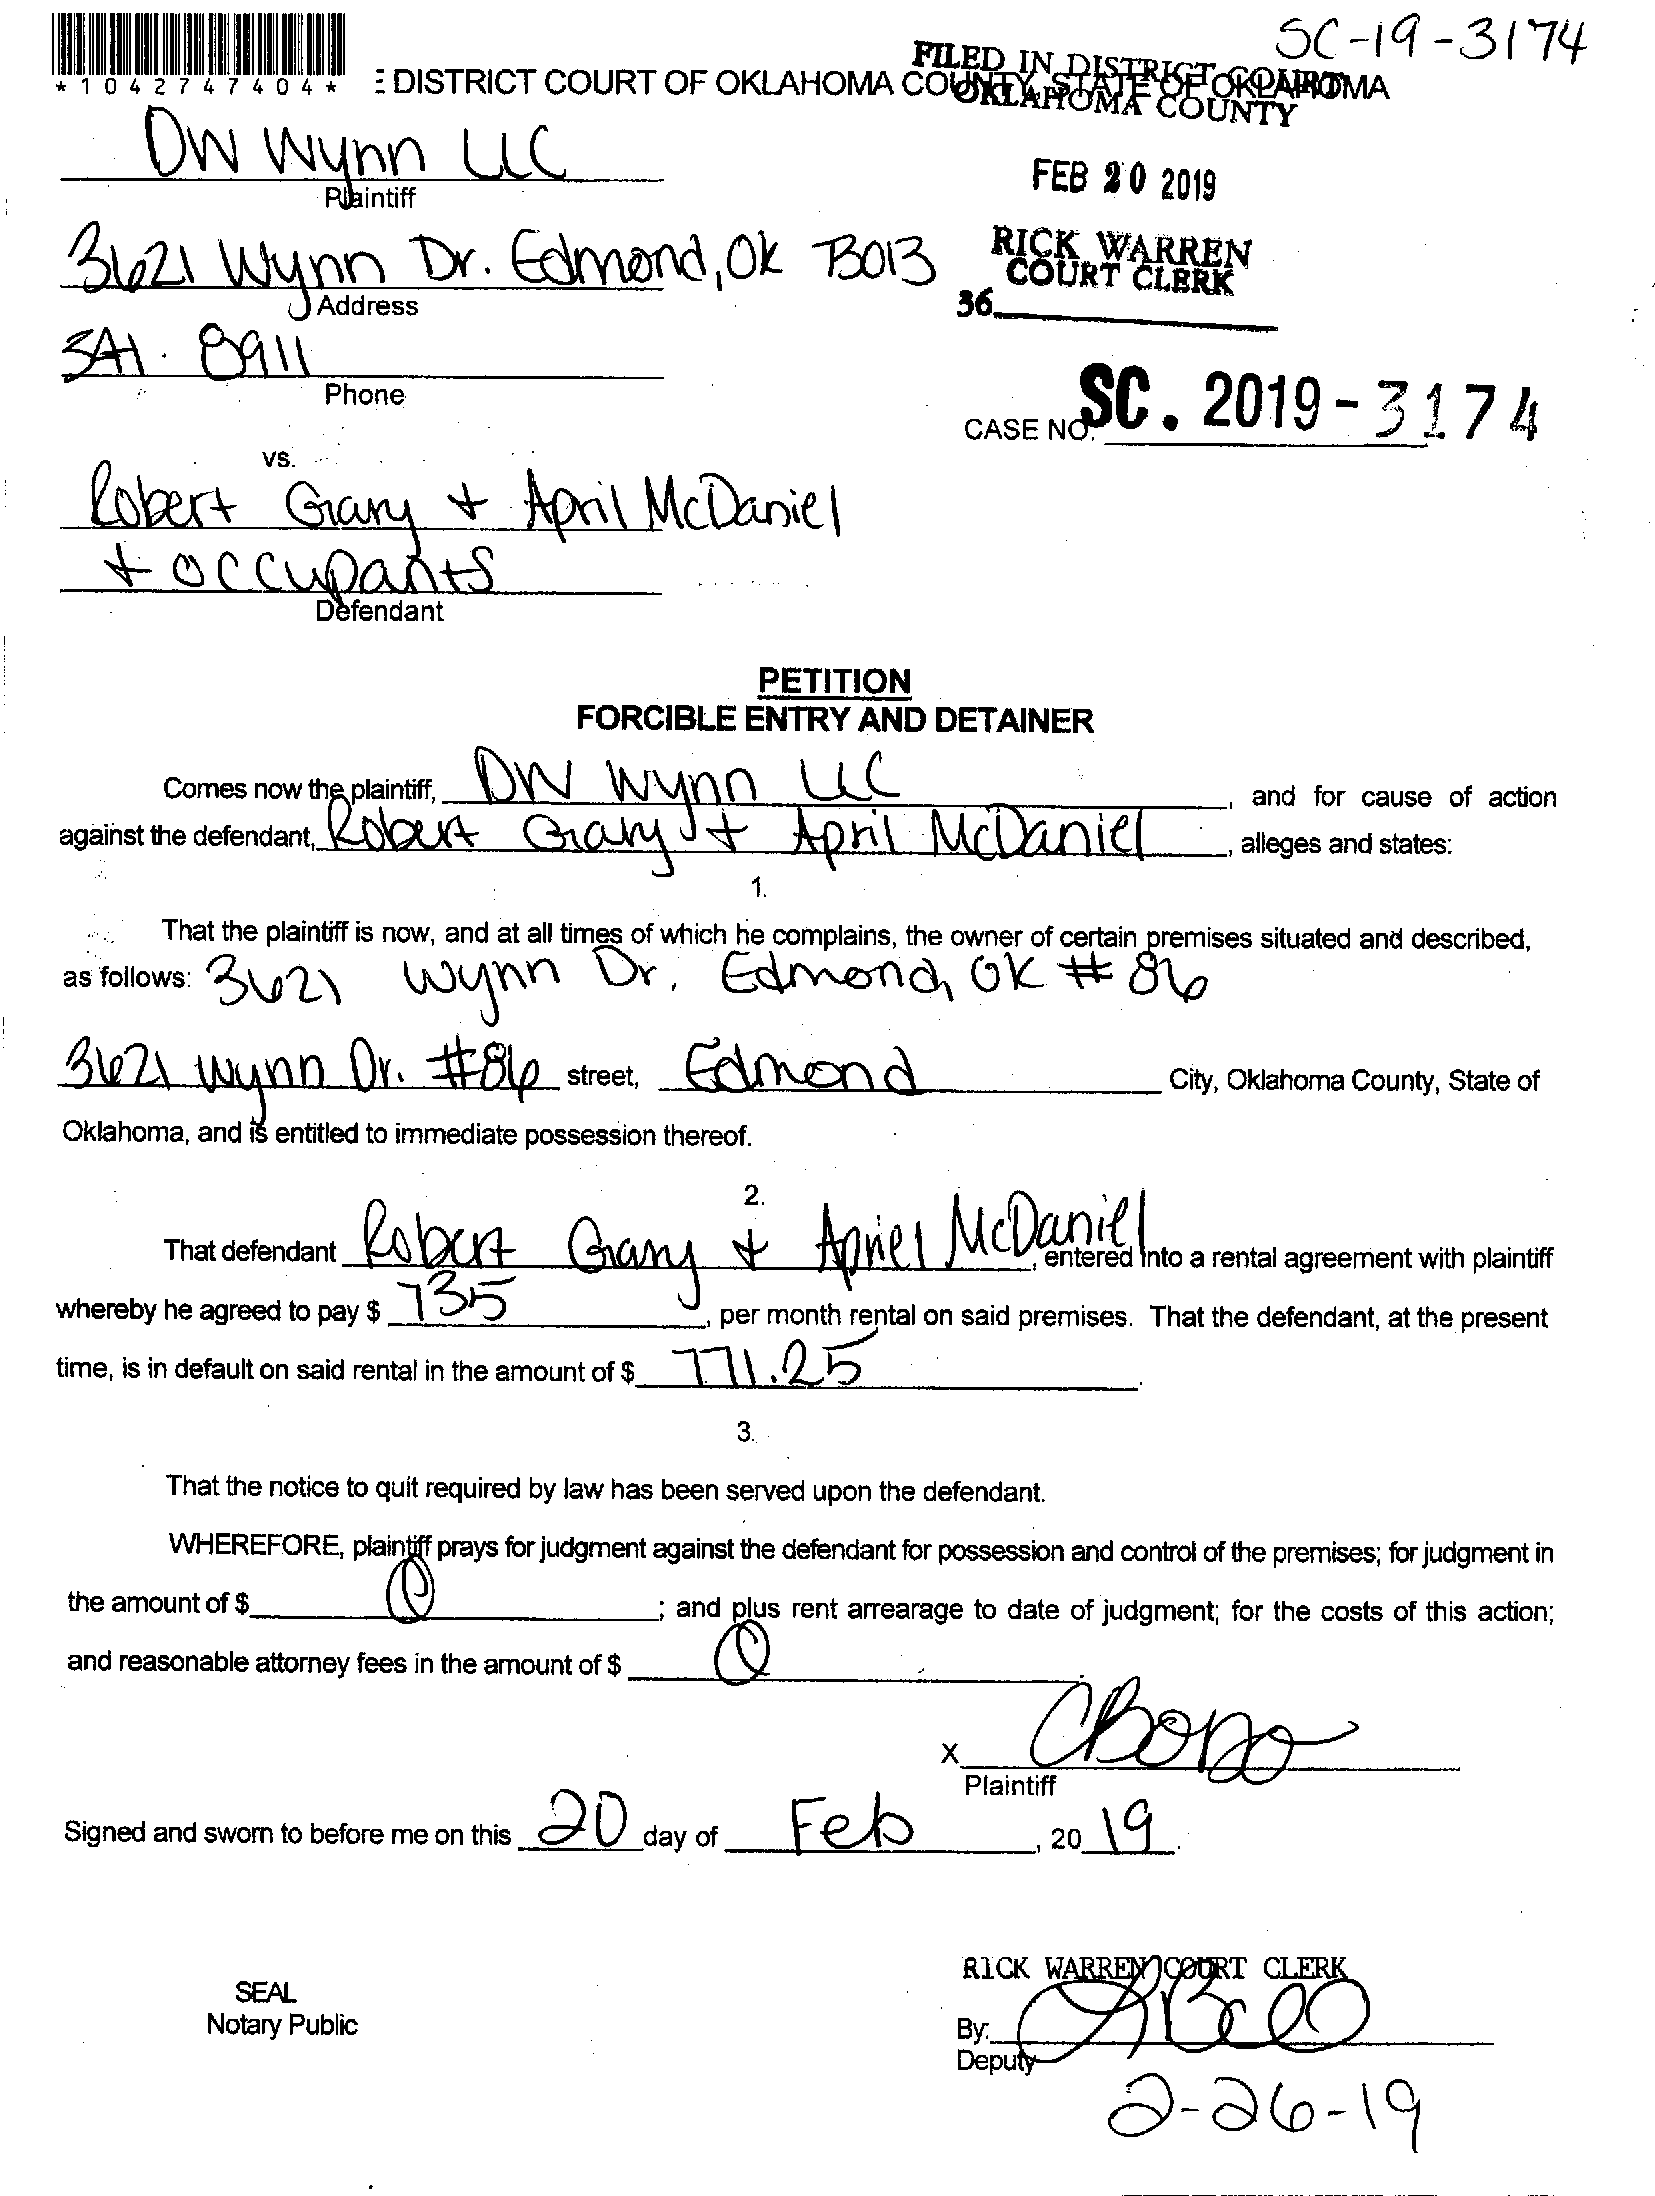 SC-19-3174
*1042747404*
E DISTRICT COURT OF OKLAHOMA COUNTY, STATE OF OKLAHOMA
FILED IN DISTRICT COURT
OKLAHOMA COUNTY
DW Wynn LLC
Plaintiff
FEB 20 2019
3621 Wynn Dr. Edmond, Ok 73013
Address
RICK WARREN
COURT CLERK
36
341-8911
Phone
CASE NO. SC. 2019-3174
vs.
Robert Grary + April McDaniel
+ occupants
Defendant
PETITION
FORCIBLE ENTRY AND DETAINER
Comes now the plaintiff, DW Wynn LLC, and for cause of action
against the defendant, Robert Grary + April McDaniel, alleges and states:
1.
That the plaintiff is now, and at all times of which he complains, the owner of certain premises situated and described,
as follows: 3621 Wynn Dr. Edmond, OK #86
3621 Wynn Dr. #86 street, Edmond City, Oklahoma County, State of
Oklahoma, and is entitled to immediate possession thereof.
2.
That defendant Robert Grary + Apriel McDaniel, entered into a rental agreement with plaintiff
whereby he agreed to pay $ 735, per month rental on said premises. That the defendant, at the present
time, is in default on said rental in the amount of $ 771.25.
3.
That the notice to quit required by law has been served upon the defendant.
WHEREFORE, plaintiff prays for judgment against the defendant for possession and control of the premises; for judgment in
the amount of $ 0; and plus rent arrearage to date of judgment; for the costs of this action;
and reasonable attorney fees in the amount of $ 0
x CBozo
Plaintiff
Signed and sworn to before me on this 20 day of Feb, 20 19.
SEAL
Notary Public
RICK WARREN COURT CLERK
By:
Deputy
2-26-19